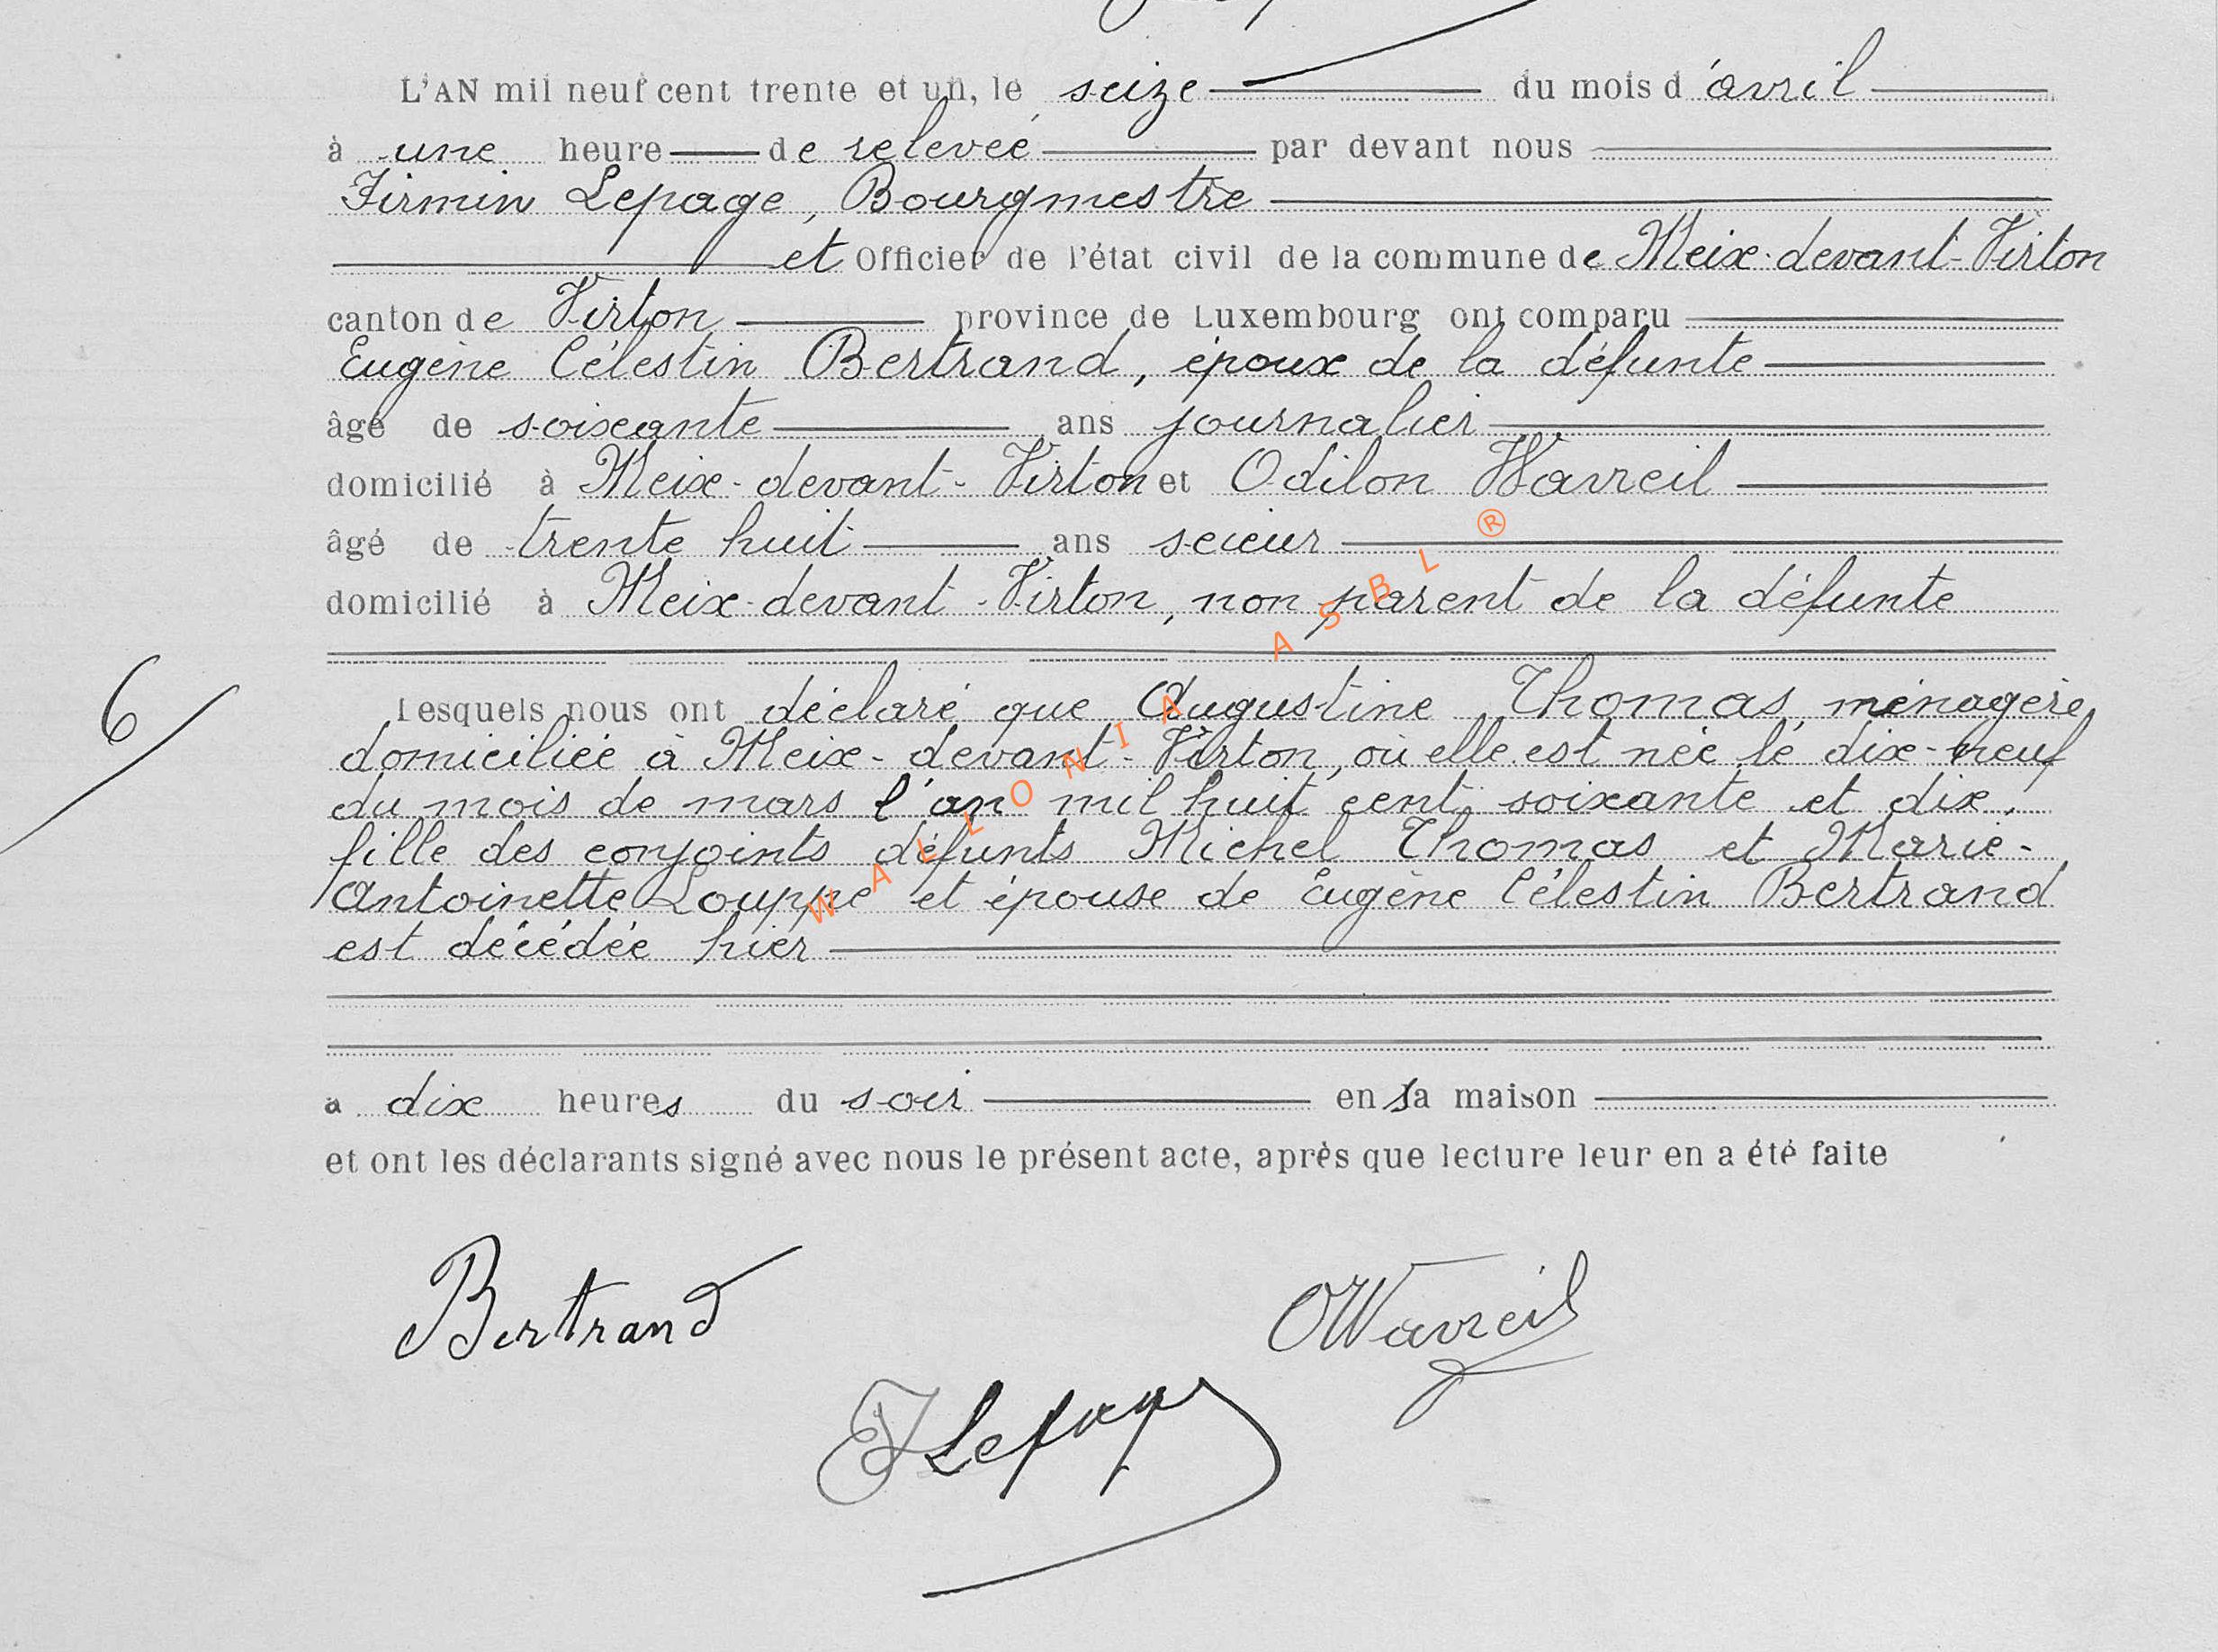 L'AN mil neuf cent trente et un, le seize du mois d'avril
à une heure de relevée par devant nous
Firmin Lepage, Bourgmestre
et Officier de l'état civil de la commune de Meix-devant-Virton
canton de Virton province de Luxembourg ont comparu
Eugène Célestin Bertrand, époux de la défunte
âgé de soixante ans journalier
domicilié à Meix-devant-Virton et Odilon Wavreil
âgé de trente huit ans scieur
domicilié à Meix-devant-Virton, non parent de la défunte
6
Lesquels nous ont déclaré que Augustine Thomas, ménagère,
domiciliée à Meix-devant-Virton, où elle est née le dix-neuf
du mois de mars l'an mil huit cent soixante et dix,
fille des conjoints défunts Michel Thomas et Marie-
Antoinette Louppe et épouse de Eugène Célestin Bertrand
est décédée hier
à dix heures du soir en sa maison
et ont les déclarants signé avec nous le présent acte, après que lecture leur en a été faite
Bertrand OWavreil
FLepage
WALLONIA ASBL ®